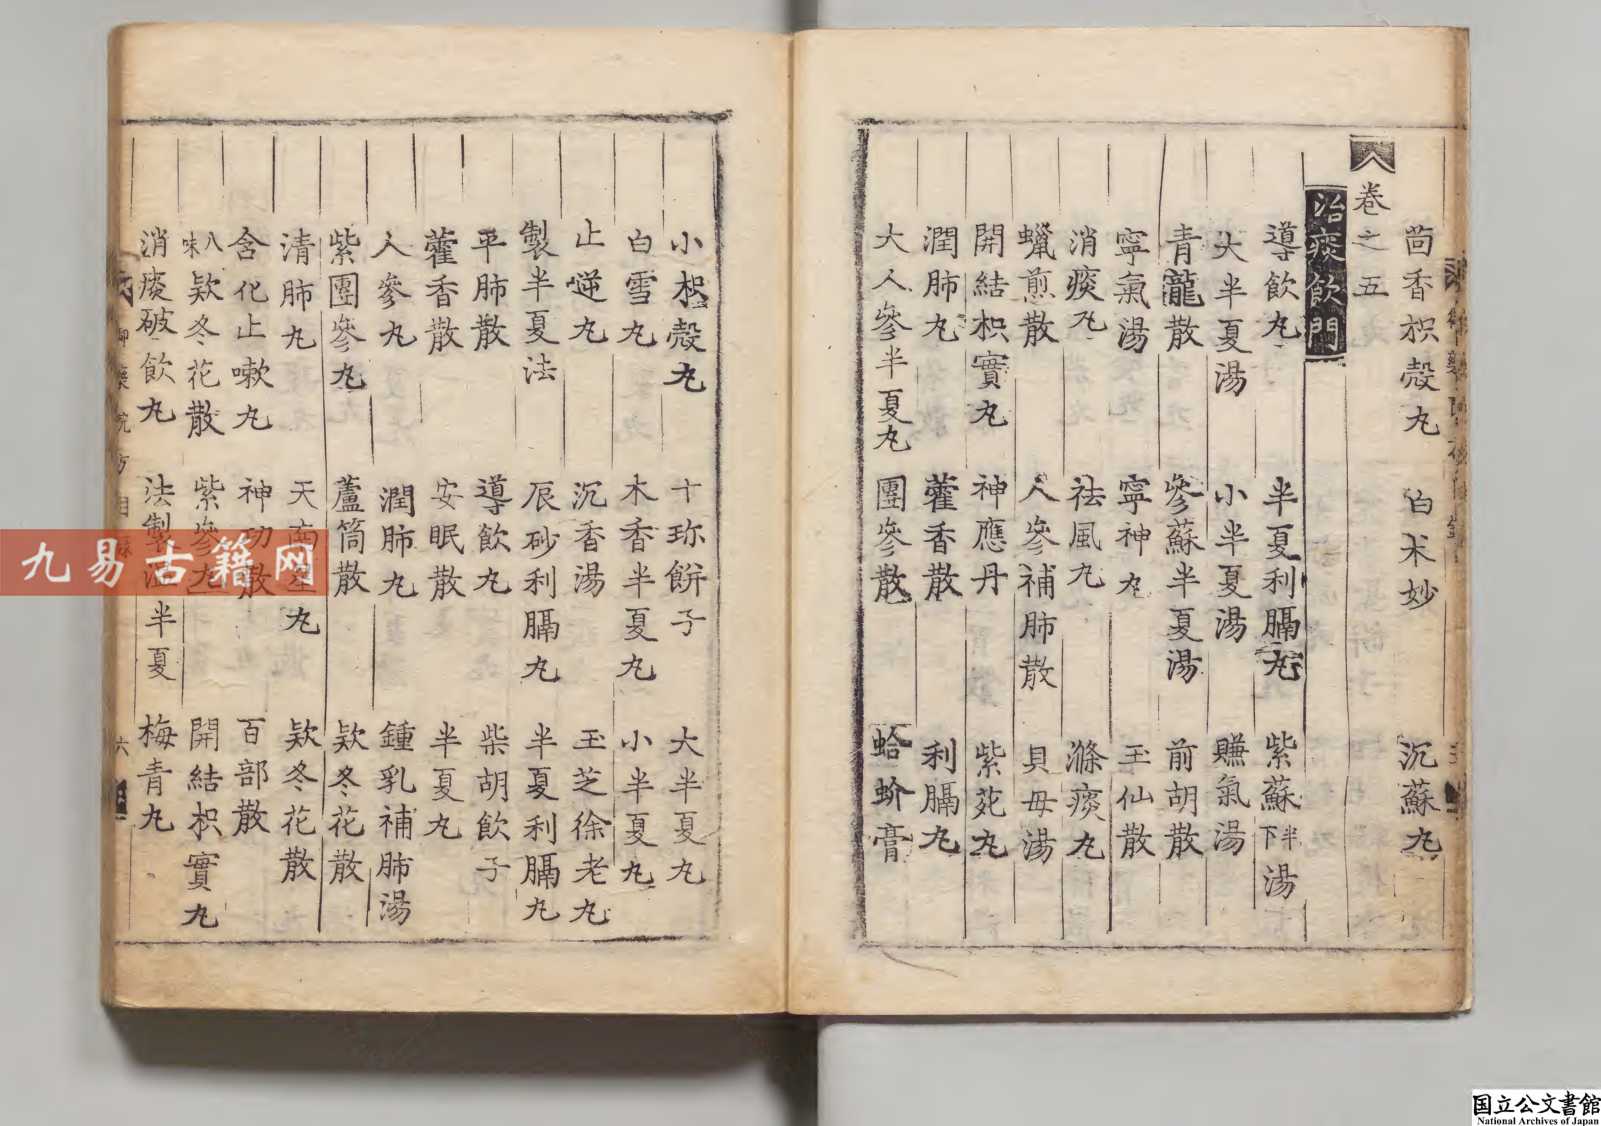 茴香枳殼丸 白朮妙 沉蘇丸
卷之五
治痰飲門
導飲丸 半夏利膈丸 紫蘇半下湯
大半夏湯 小半夏湯 賺氣湯
青龍散 參蘇半夏湯 前胡散
寧氣湯 寧神丸 玉仙散
消痰丸 祛風丸 滌痰丸
蠟煎散 人參補肺散 貝母湯
開結枳實丸 神應丹 紫菀丸
潤肺丸 藿香散 利膈丸
大人參半夏丸 團參散 蛤蚧膏
小枳殼丸 十珎餅子 大半夏丸
白雪丸 木香半夏丸 小半夏丸
止逆丸 沉香湯 玉芝徐老丸
製半夏法 辰砂利膈丸 半夏利膈丸
平肺散 導飲丸 柴胡飲子
藿香散 安眠散 半夏丸
人參丸 潤肺丸 鍾乳補肺湯
紫團參丸 蘆筒散 欵冬花散
清肺丸 天南星丸 欵冬花散
含化止嗽丸 神功散 百部散
八味欵冬花散 紫參丸 開結枳實丸
消痰破飲丸 法製 半夏 梅青丸
御藥院方目錄 六
九易古籍网
国立公文書館
National Archives of Japan